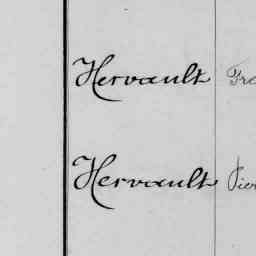 Hervault Fre
Hervault Pier